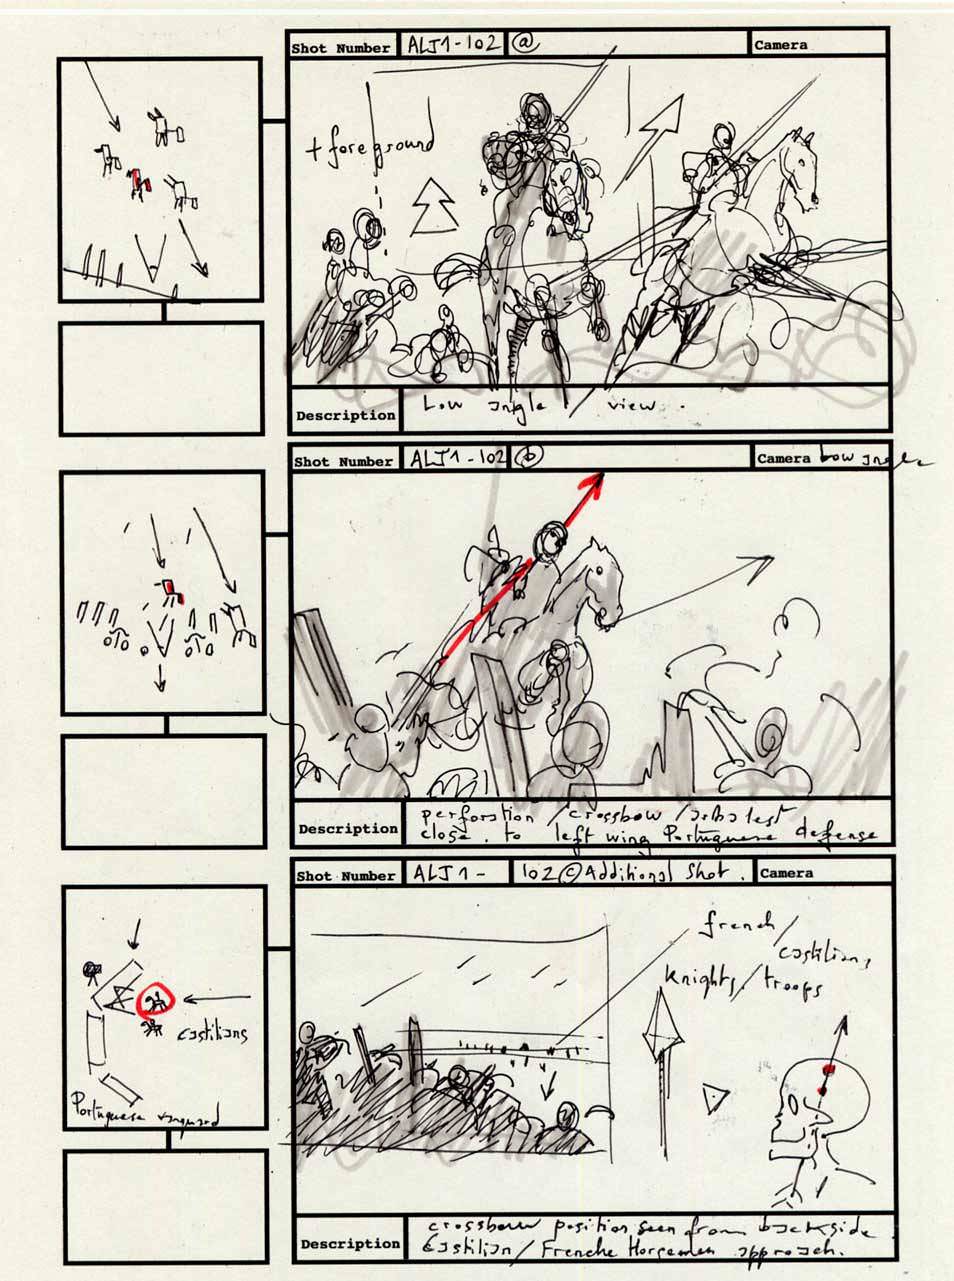 Shot Number ALJ1-102 a Camera
+ foreground
Description Low angle / view.
Shot Number ALJ1-102 b Camera low angle
Description perforation / crossbow / arbalest
close. to left wing Portuguese defense
Shot Number ALJ1- 102 © Additional Shot. Camera
french /
castilians
knights / troops
castilians
Portuguese vanguard
Description crossbow position seen from backside.
Castilian / Frenche Horsemen approach.